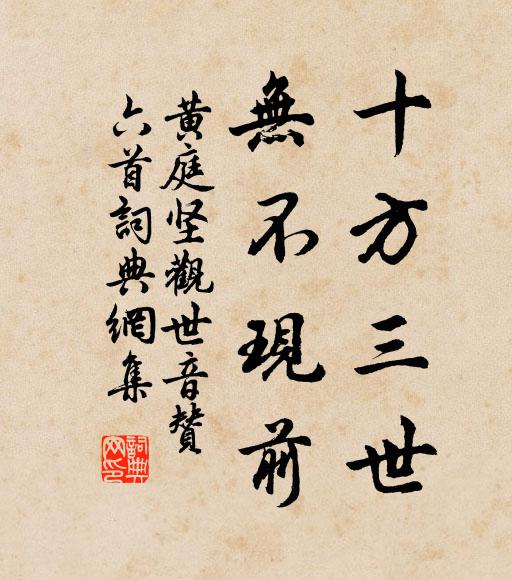 十方三世
無不現前
黄庭坚觀世音賛
六首詞典網集
詞典
网印